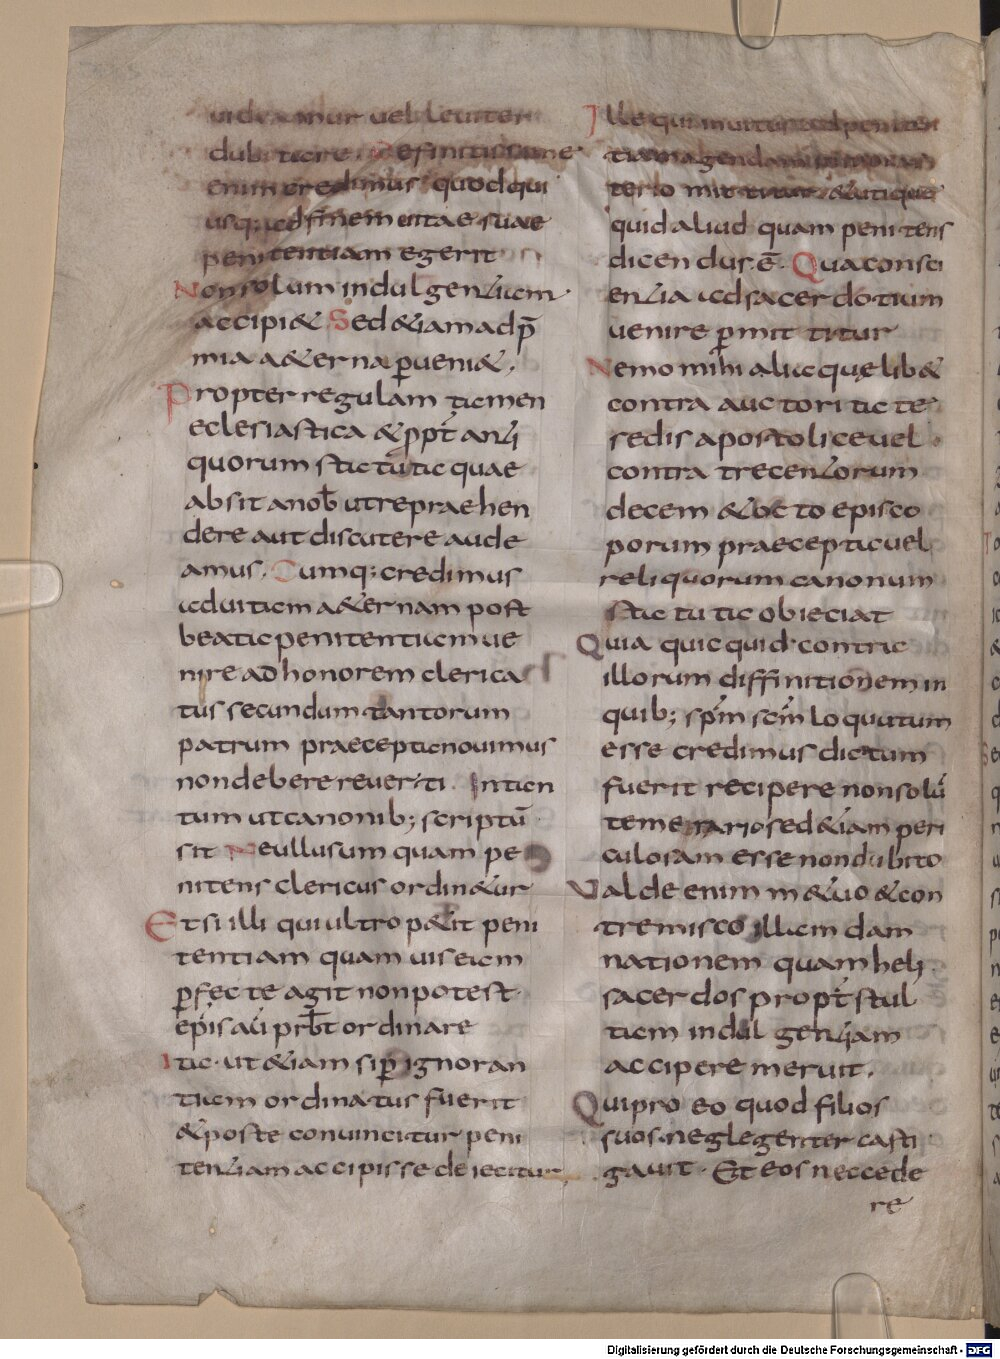 uideamur uel leuiter
dubitare. Definitissime
enim credimus quod qui
usq; ad finem uitae suae
penitentiam egerit
Non solum indulgentiam
accipiet Sed etiam ad p̄
mia aeterna ꝑueniet.
Propter regulam tamen
eclesiastica & ꝓpt̄ anti
quorum statuta quae
absit a nob̄ ut repraehen
dere aut discutere aude
amus. Cumq; credimus
ad uitam aeternam post
beata penitentiam ue
nire ad honorem clerica
tus secundum tantorum
patrum praecepta nouimus
non debere reuerti. In tan
tum ut canonib; scriptū
sit Ne ullus umquam pe
nitens clericus ordinetur
Et si illi qui ultro petit peni
tentiam quam uis eam
ꝑfecte agit non potest
ep̄is aut prb̄t ordinare
Ita ut etiam si ꝑ ignoran
tiam ordinatus fuerit
& poste conuincitur peni
tentiam accipisse deiecitur
Ille qui inuitus ad peniten
tiam agendam in monas
terio mittitur & utique
quid aliud quam penitens
dicendus ē. Qua consci
entia ad sacerdotium
uenire ꝑmittitur
Nemo mihi aliacque libet
contra auctoritate
sedis apostolice uel
contra trecentorum
decem & octo episco
porum praecepta uel
reliquorum canonum
statuta obieciat
Quia quicquid contra
illorum diffinitionem in
quib; sp̄m sc̄m loquutum
esse credimus dictum
fuerit recipere non solū
temerario sed etiam peri
culosam esse non dubito
Valde enim metuo & con
tremisco illam dam
nationem quam heli
sacerdos propt̄ stul
tam indulgentiam
accipere meruit.
Qui pro eo quod filios
suos neglegenter casti
gauit. Et eos nec cede
re
Digitalisierung gefördert durch die Deutsche Forschungsgemeinschaft - DFG